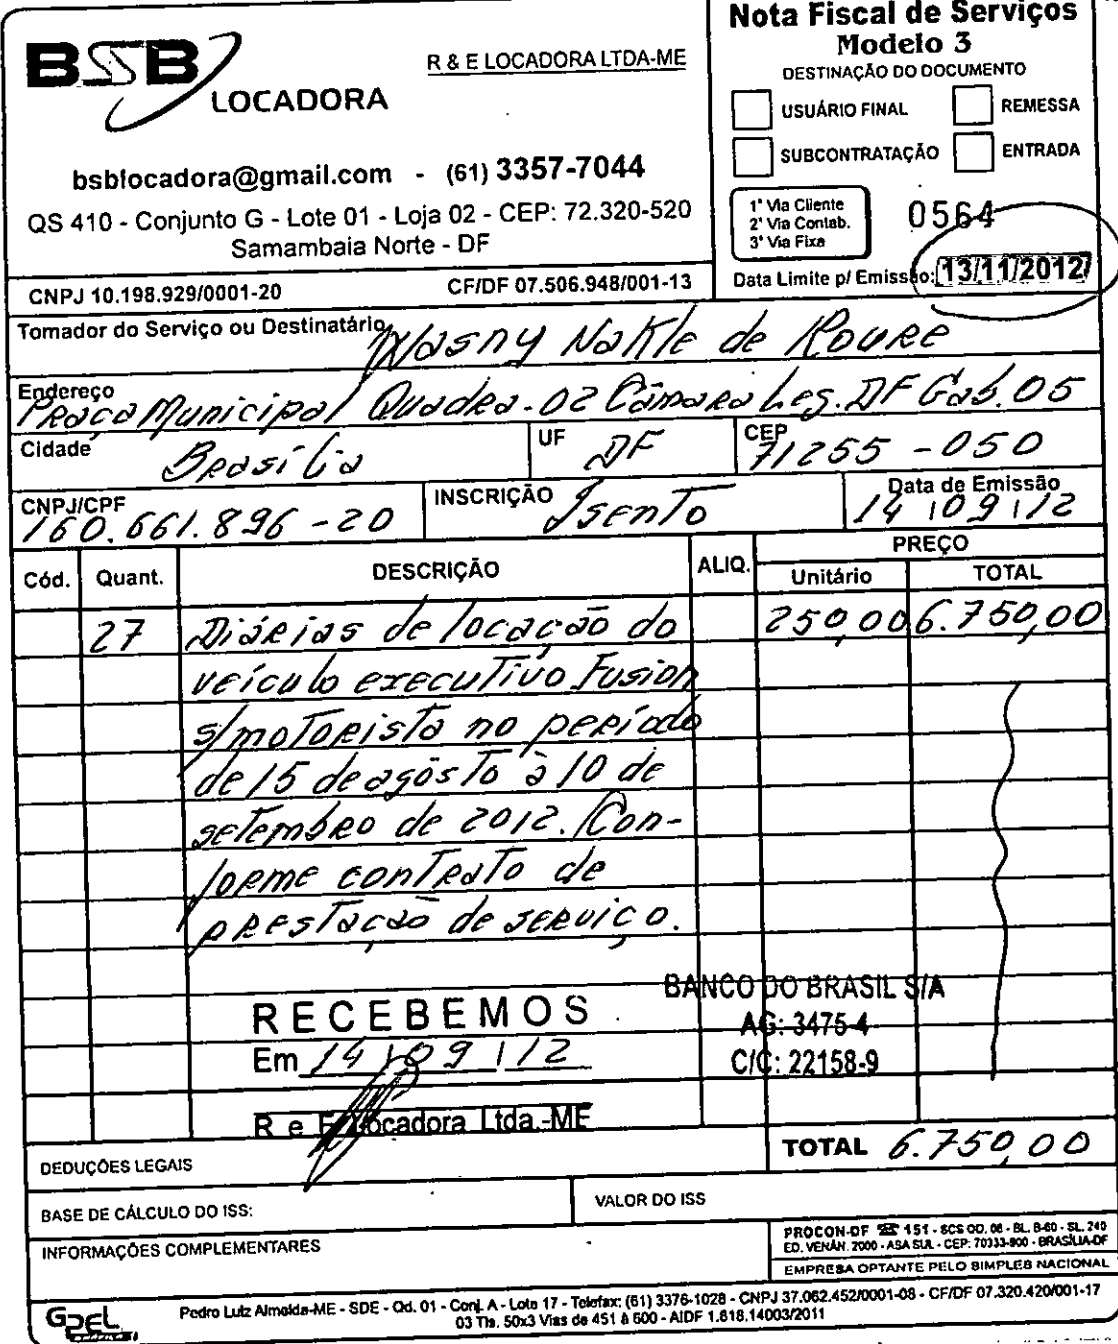 BSB LOCADORA
R & E LOCADORA LTDA-ME
bsblocadora@gmail.com - (61) 3357-7044
QS 410 - Conjunto G - Lote 01 - Loja 02 - CEP: 72.320-520
Samambaia Norte - DF
CNPJ 10.198.929/0001-20 CF/DF 07.506.948/001-13
Nota Fiscal de Serviços
Modelo 3
DESTINAÇÃO DO DOCUMENTO
USUÁRIO FINAL REMESSA
SUBCONTRATAÇÃO ENTRADA
1ª Via Cliente
2ª Via Contab.
3ª Via Fixa
0564
Data Limite p/ Emissão: 13/11/2012
Tomador do Serviço ou Destinatário Wasny Nakle de Roure
Endereço Praça Municipal Quadra-02 Câmara Leg. DF Gab. 05
Cidade Brasília UF DF CEP 71255-050
CNPJ/CPF 160.661.896-20 INSCRIÇÃO Isento Data de Emissão 14/09/12
Cód. Quant. DESCRIÇÃO ALIQ. PREÇO
Unitário TOTAL
27 Diárias de locação do 250,00 6.750,00
veículo executivo Fusion
s/motorista no período
de 15 de agôsto à 10 de
setembro de 2012. Con-
forme contrato de
prestação de serviço.
RECEBEMOS
Em 14/09/12
R e E Locadora Ltda.-ME
BANCO DO BRASIL S/A
AG: 3475-4
C/C: 22158-9
DEDUÇÕES LEGAIS
TOTAL 6.750,00
BASE DE CÁLCULO DO ISS: VALOR DO ISS
INFORMAÇÕES COMPLEMENTARES
PROCON-DF ☎ 151 - SCS QD. 08 - BL. B-60 - SL. 240
ED. VENÂN. 2000 - ASA SUL - CEP: 70333-900 - BRASÍLIA-DF
EMPRESA OPTANTE PELO SIMPLES NACIONAL
Pedro Lutz Almeida-ME - SDE - Qd. 01 - Conj. A - Lote 17 - Telefax: (61) 3376-1028 - CNPJ 37.062.452/0001-08 - CF/DF 07.320.420/001-17
03 Tls. 50x3 Vias de 451 à 600 - AIDF 1.818.14003/2011